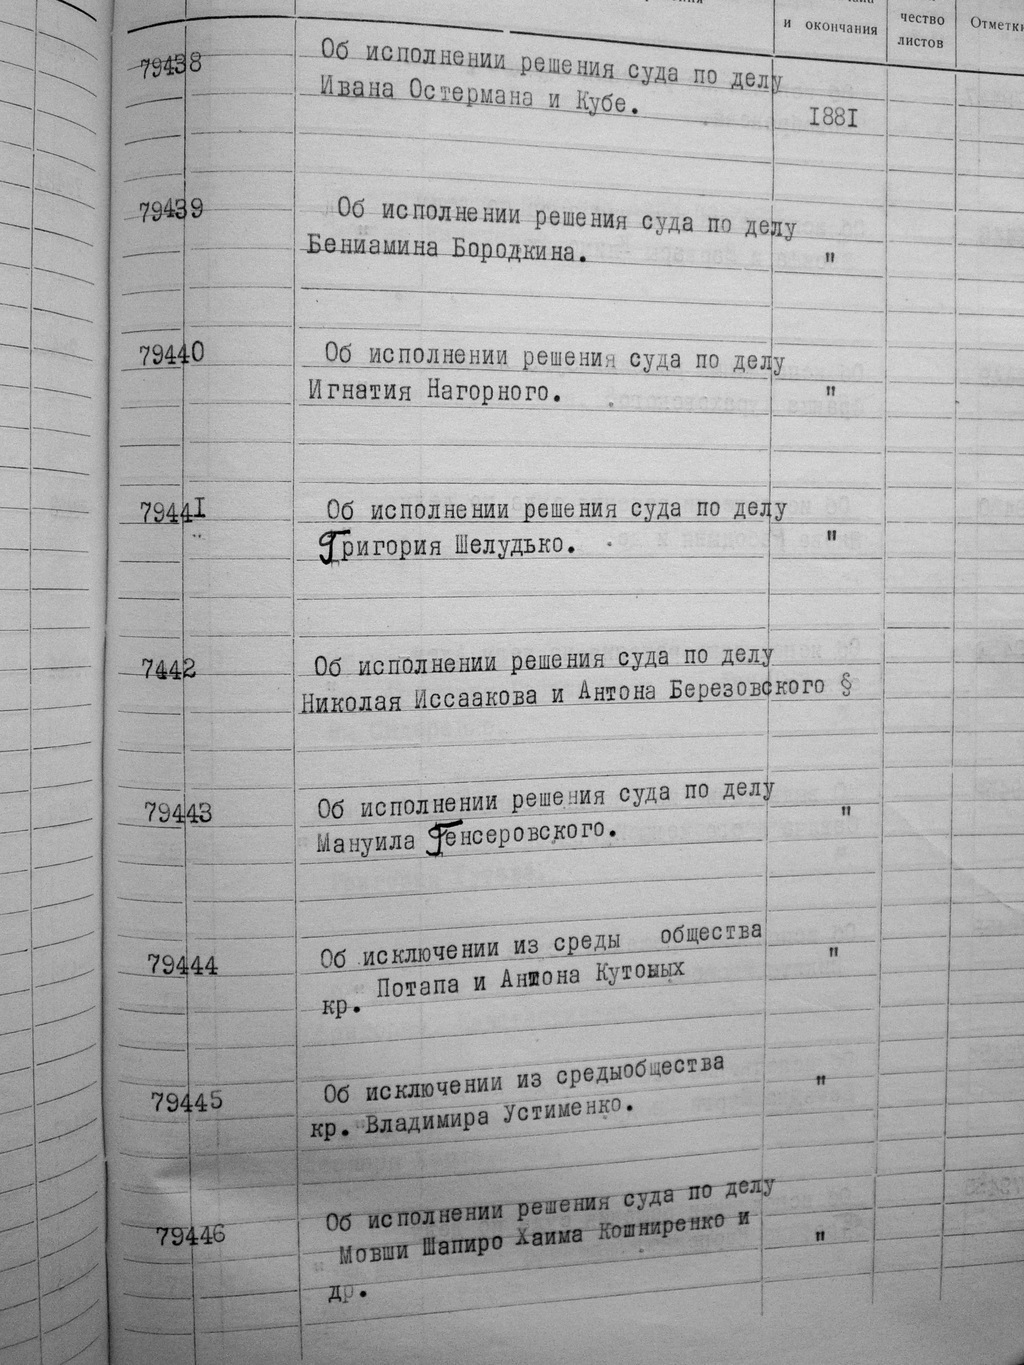 и окончания
чество
листов
Отметки
79438 Об исполнении решения суда по делу
Ивана Остермана и Кубе. 1881
79439 Об исполнении решения суда по делу
Бениамина Бородкина. "
79440 Об исполнении решения суда по делу
Игнатия Нагорного. "
79441 Об исполнении решения суда по делу
Григория Шелудько. "
7442 Об исполнении решения суда по делу
Николая Иссаакова и Антона Березовского §
79443 Об исполнении решения суда по делу "
Мануила Генсеровского.
79444 Об исключении из среды общества "
кр. Потапа и Антона Кутовых
79445 Об исключении из средыобщества "
кр. Владимира Устименко.
79446 Об исполнении решения суда по делу
Мовши Шапиро Хаима Кошниренко и "
др.